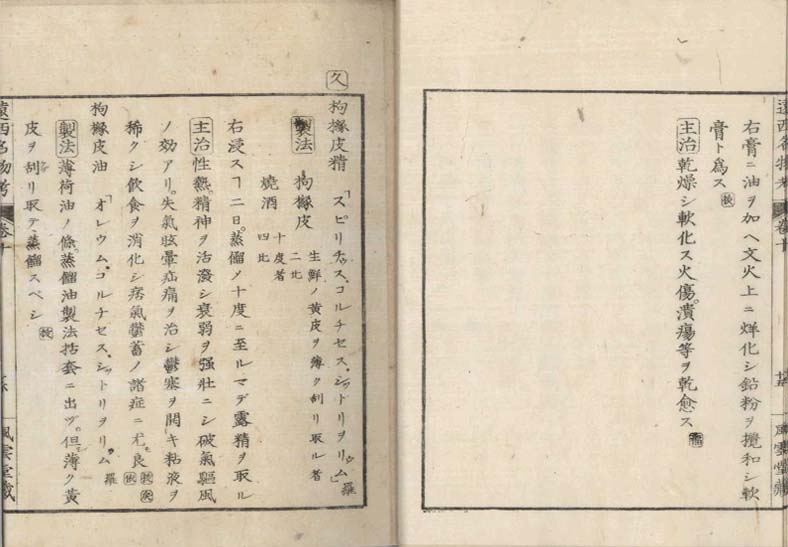 遠西名物考 巻十 風雲堂藏
右膏ニ油ヲ加ヘ文火上ニ烊化シ鉛粉ヲ攪和シ軟
膏ト爲ス
主治乾燥シ軟化ス火傷。潰瘍等ヲ乾愈ス
久
拘櫞皮精「スピリチュス、コルチセス、シットリヲリュム」羅
製法 拘櫞皮 生鮮ノ黄皮ヲ薄ク刮リ取ル者 二比
燒酒 十度者 四比
右浸スヿ二日。蒸餾ノ十度ニ至ルマデ露精ヲ取ル
主治性熱。精神ヲ活潑シ衰弱ヲ强壮ニシ破氣驅風
ノ効アリ。失氣眩暈疝痛ヲ治シ鬱塞ヲ開キ粘液ヲ
稀クシ飲食ヲ消化シ痞氣鬱蓄ノ諸症ニ尤モ良
拘櫞皮油「オレウム、コルチセス、シットリヲリュム 羅
製法薄荷油ノ條。蒸餾油製法括套ニ出ヅ。但シ薄ク黄
皮ヲ刮リ取テ蒸餾スベシ
遠西名物考 巻十 風雲堂藏